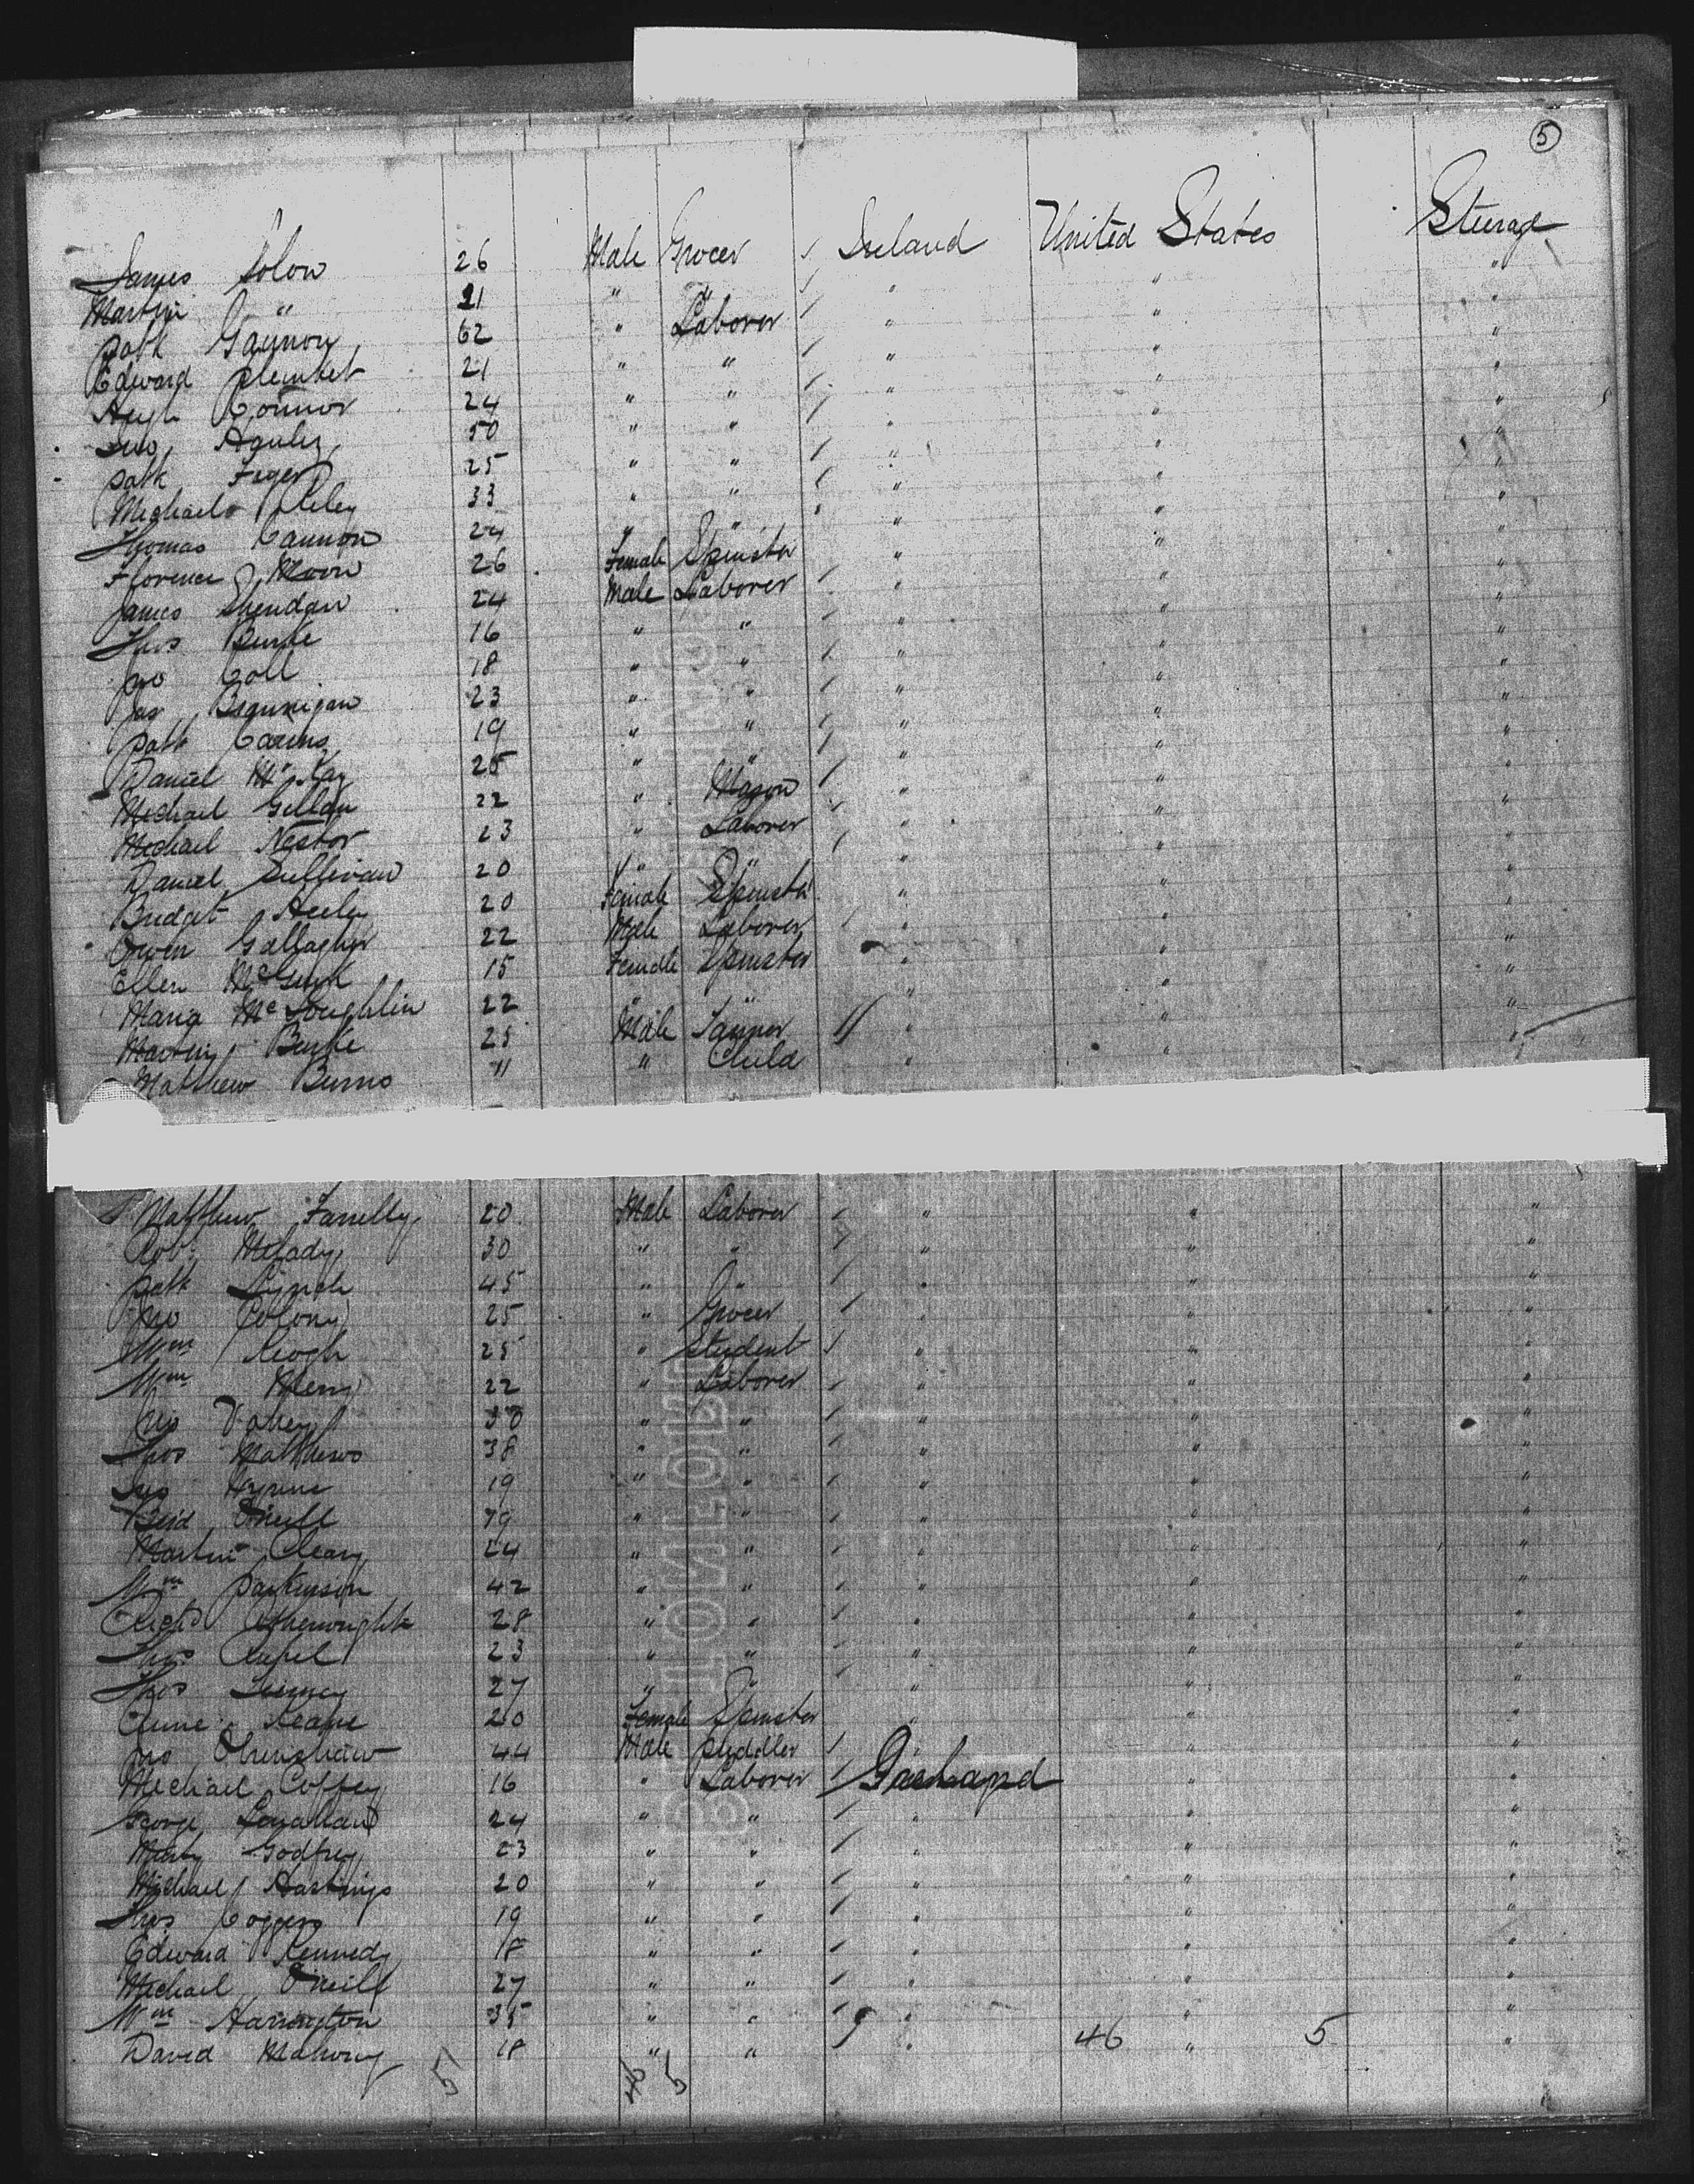 5
James Solon 26 Male Grocer Ireland United States Steerag
Martin " 21 " " " " "
Patk Gannon 62 " Laborer " " "
Edward Plunket 21 " " " " "
Hugh Connor 24 " " " " "
Jno Hanley 50 " " " " "
Patk 25 " " " " "
Michael Riley 33 " " " " "
Thomas Cannon 24 " " " " "
Florence Moon 26 Female Spinster " " "
James Sheridan 24 Male Laborer " " "
Thos Burke 16 " " " " "
Jno Coll 18 " " " " "
Jas Brannigan 23 " " " " "
Patk Carins 19 " " " " "
Daniel McKay 25 " " " " "
Michael Gillan 22 " Mason " " "
Michael Nestor 23 " Laborer " " "
Daniel Sullivan 20 " " " " "
Bridget Heely 20 Female Spinster " " "
Owen Gallagher 22 Male Laborer " " "
Ellen McGurk 15 Female Spinster " " "
Maria McLoughlin 22 " " " " "
Martin Burke 25 Male Tanner " " "
Matthew Burns 11 " Child " "
Matthew Farrelly 20 Male Laborer " " "
Robt Melady 30 " " " " "
Patk Lynch 45 " " " " "
Jno Colony 25 " Grocer " " "
Wm Keogh 25 " Student " " "
Wm 22 " Laborer " " "
Jno Vahey 30 " " " " "
Thos Matthews 38 " " " " "
Jno Hynes 19 " " " " "
O'Neill 19 " " " " "
Martin Cleary 24 " " " " "
Wm Parkinson 42 " " " " "
Richd 28 " " " " "
Thos 23 " " " " "
Thos 27 " " " " "
Anne Keane 20 Female Spinster " " "
Jno 44 Male Peddler " " "
Michael Coffey 16 " Laborer " "
George 24 " " " " "
Godfrey 23 " " " " "
Michael Hastings 20 " " " " "
Thos Coggers 19 " " " " "
Edward Kennedy 18 " " " " "
Michael O'Neill 27 " " " " "
Wm Harrington 35 " " " " "
David Mahony 18 " " " 46 " 5 "
5 46 5